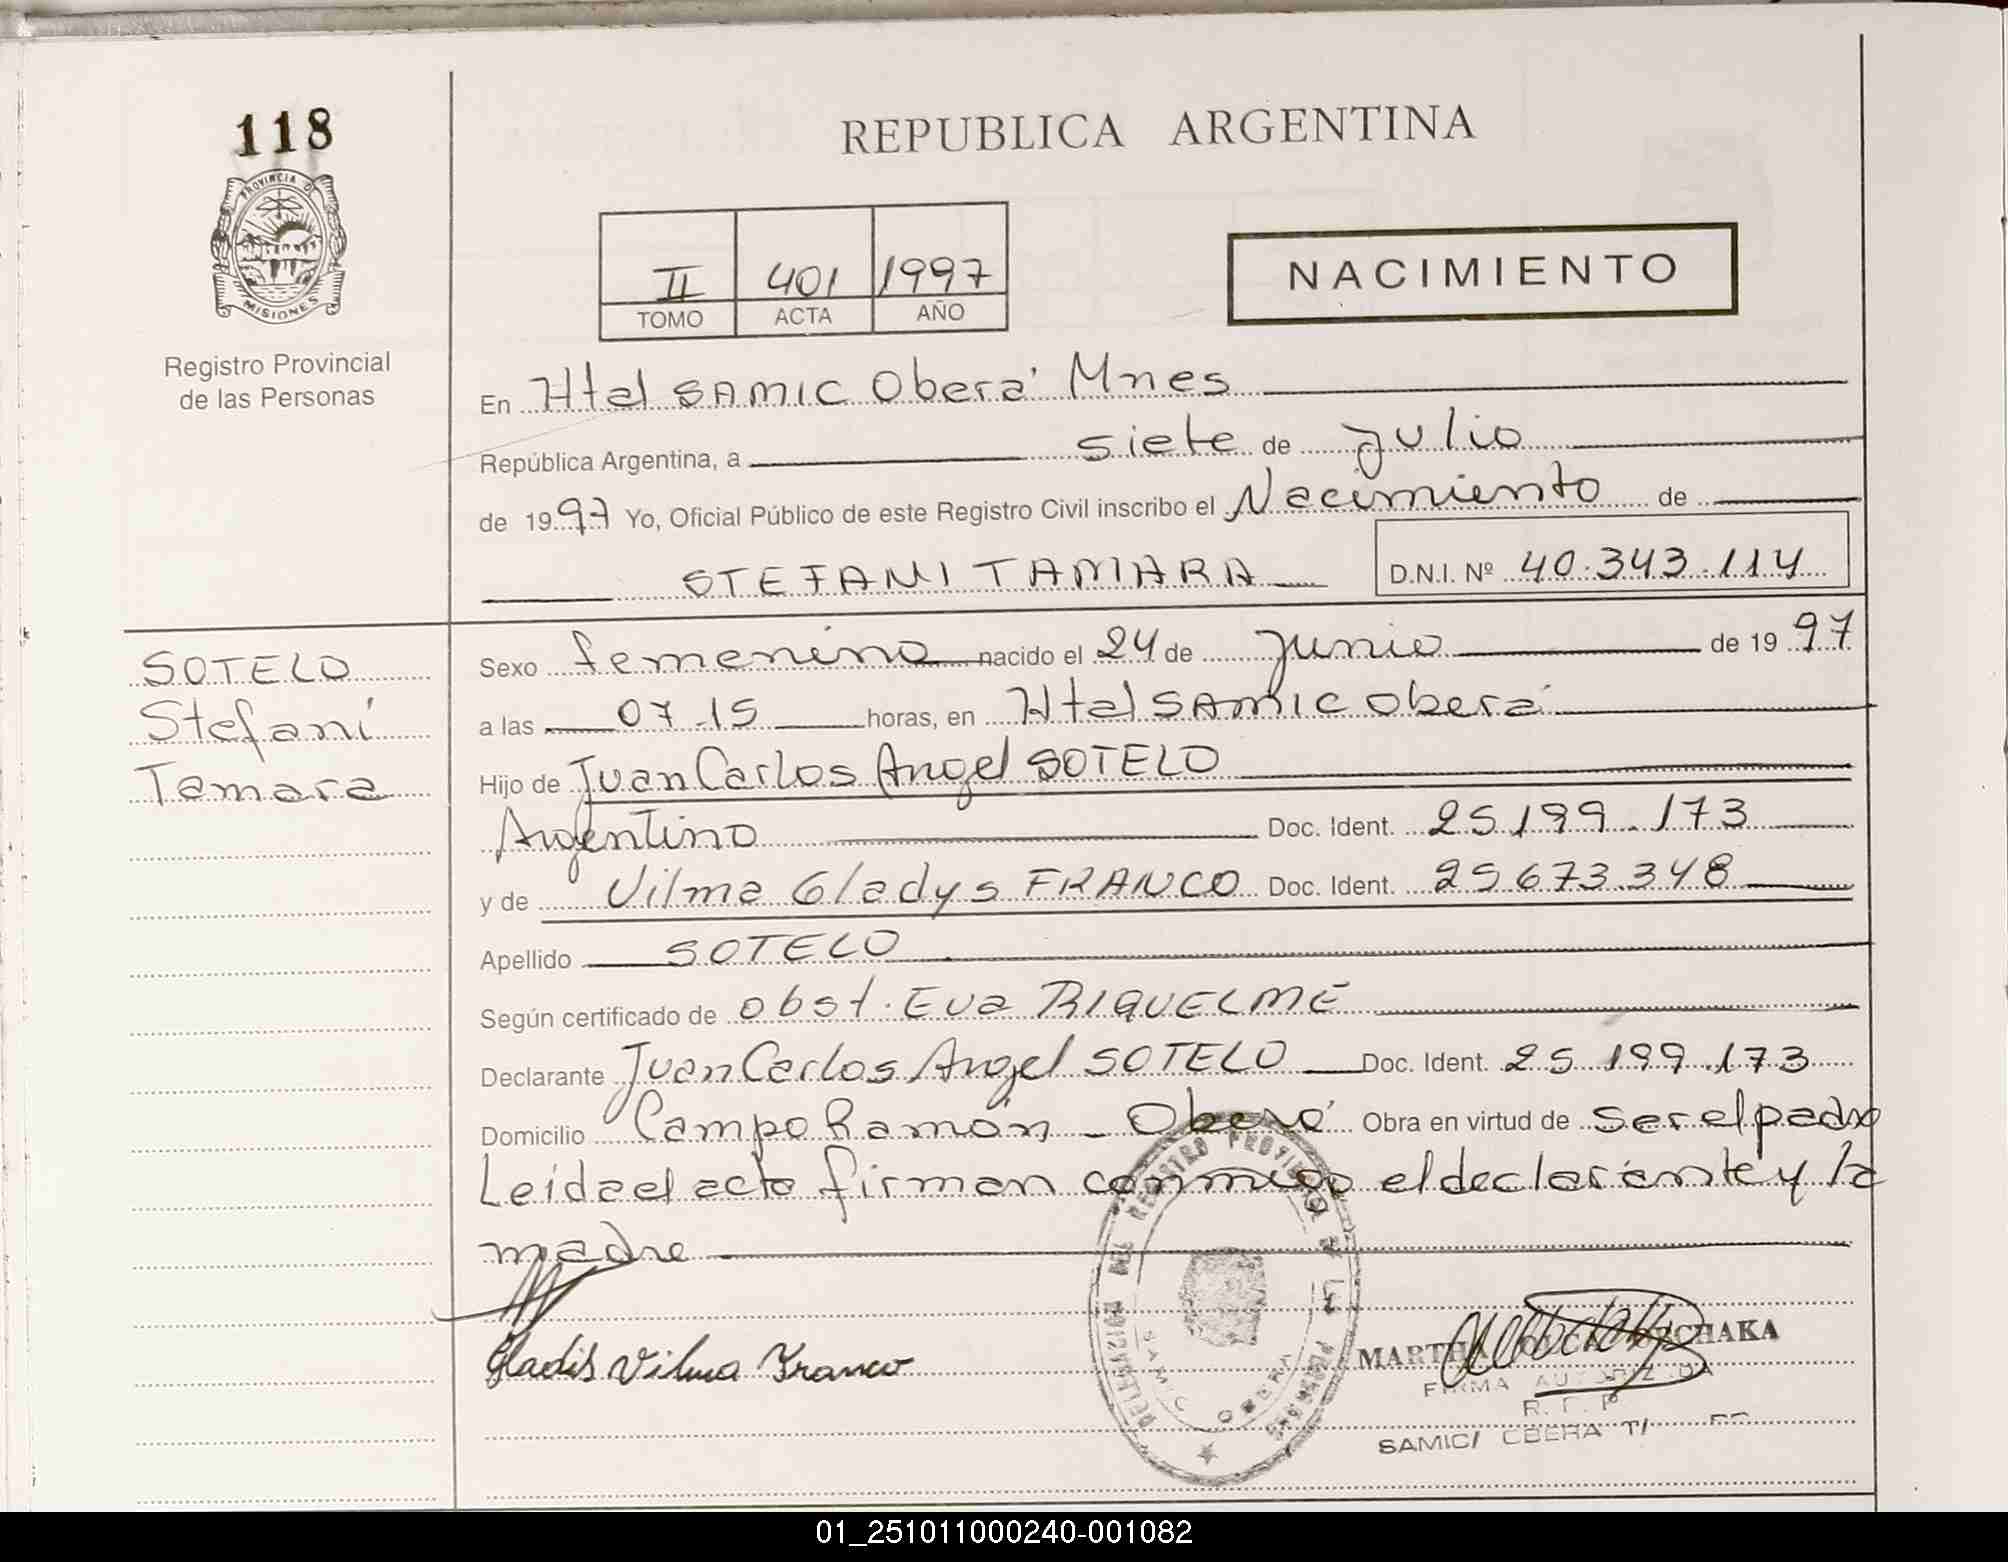 118
REPUBLICA ARGENTINA
PROVINCIA DE
MISIONES
Registro Provincial
de las Personas
II 401 1997
TOMO ACTA AÑO
NACIMIENTO
En Htal SAMIC Oberá Mnes
República Argentina, a siete de Julio
de 1997 Yo, Oficial Público de este Registro Civil inscribo el Nacimiento de
STEFANI TAMARA D.N.I. Nº 40.343.114
SOTELO
Stefani
Tamara
Sexo femenino nacido el 24 de Junio de 1997
a las 07.15 horas, en Htal SAMIC Oberá
Hijo de Juan Carlos Angel SOTELO
Argentino Doc. Ident. 25199.173
y de Vilma Gladys FRANCO Doc. Ident. 25673.348
Apellido SOTELO
Según certificado de obst. Eva RIQUELME
Declarante Juan Carlos Angel SOTELO Doc. Ident. 25 199.173
Domicilio Campo Ramón - Oberá Obra en virtud de ser el padre
Leida el acta firman conmigo el declarante y la
madre
Gladis Vilma Franco
REGISTRO PROVINCIAL DE LAS PERSONAS
SAMIC OBERA
MARTHA
FIRMA AUTORIZADA
R. P.
SAMIC/ OBERA
01_251011000240-001082